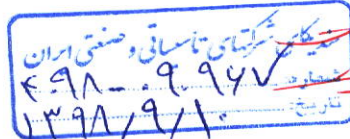 سندیکای شرکتهای تأسیساتی و صنعتی ایران
شماره: ۴۰۹۸-۰۹۰۹۶۷
تاریخ: ۱۳۹۸/۹/۱۰